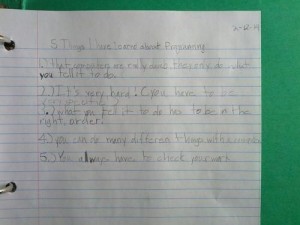 2-12-
5 Things I have learned about Programming
1.) that computers are really dumb they only do what
you tell it to do.
2.) It's very hard! (you have to be
3.) what you tell it to do has to be in the
right order.
4.) you can do many different things with a
5.) You always have to check your work